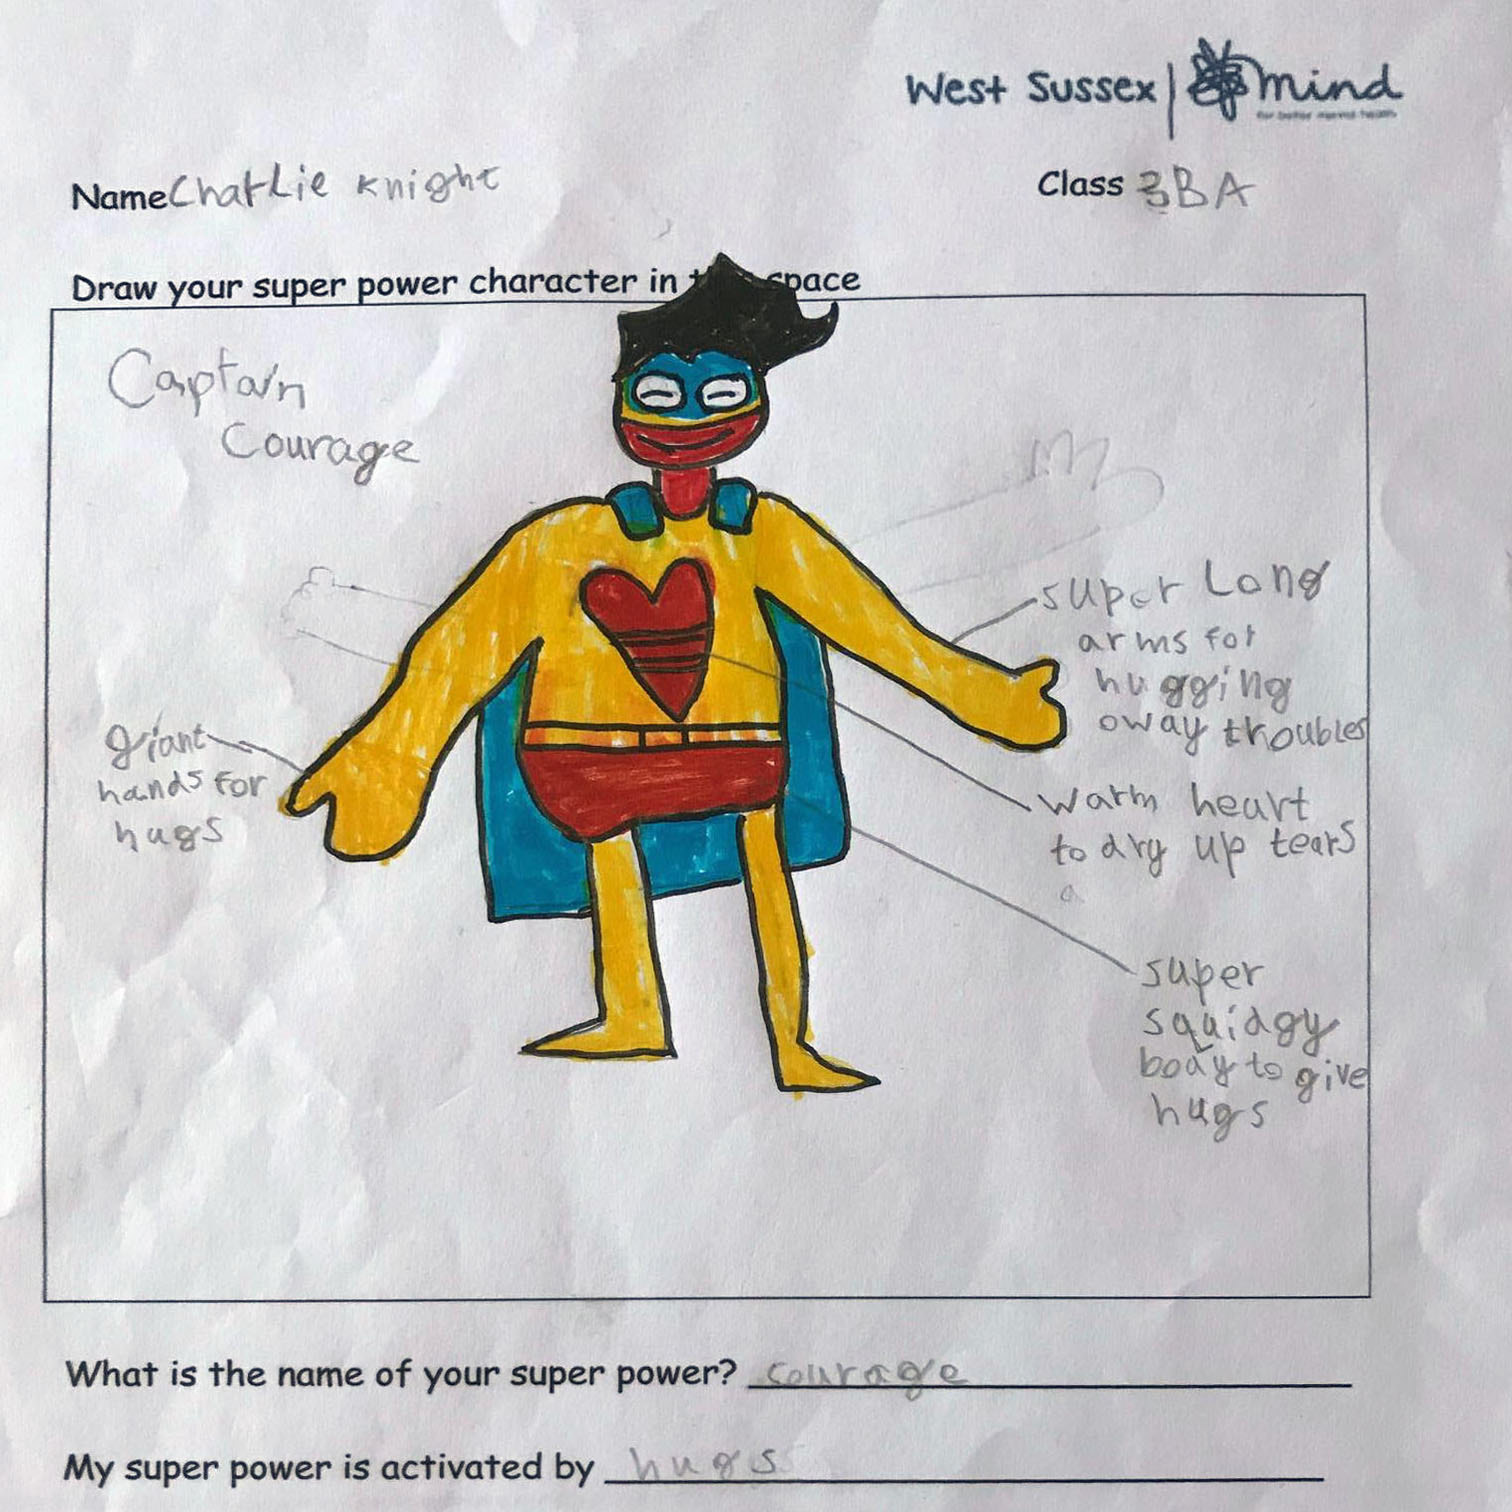 West Sussex mind
for better mental health
Name Charlie Knight
Class 3BA
Draw your super power character in space
Captain
Courage
super Long
arms for
hugging
away troubles
giant
hands for
hugs
warm heart
to dry up tears
super
squidgy
body to give
hugs
What is the name of your super power? courage
My super power is activated by hugs